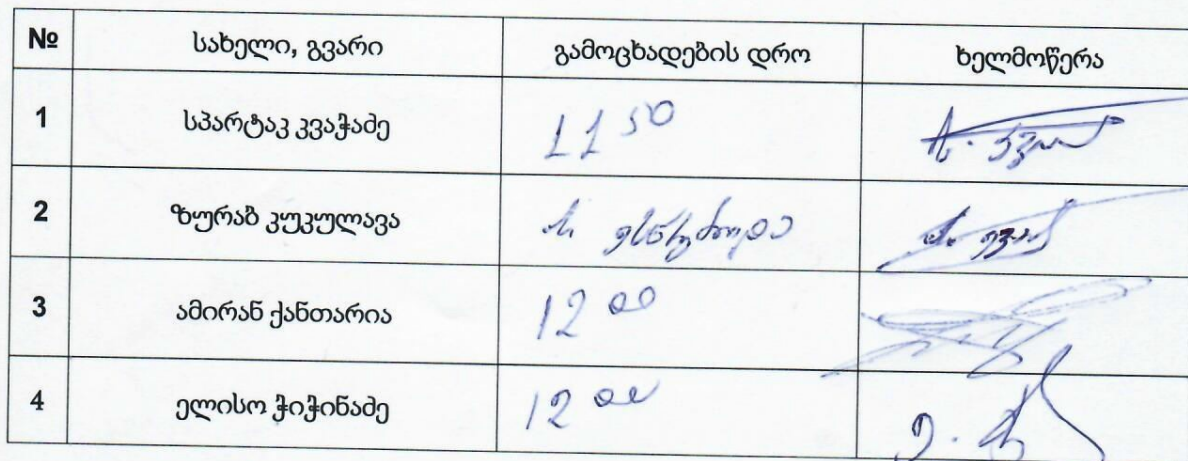 № სახელი, გვარი გამოცხადების დრო ხელმოწერა
1 სპარტაკ კვაჭაძე 11 50
2 ზურაბ კუკულავა არ ესწრებოდა
3 ამირან ქანთარია 12 00
4 ელისო ჭიჭინაძე 12 00